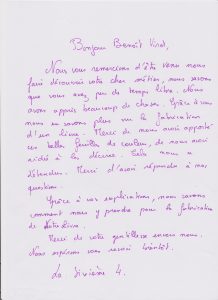 Bonjour Benoît Vidal,
Nous vous remercions d'être venu nous
faire découvrir votre cher métier, nous savons
que vous avez peu de temps libre. Nous
avons appris beaucoup de choses. Grâce à vous
nous en savons plus sur la fabrication
d'un livre. Merci de nous avoir apporté
ces belles feuilles de couleur, de nous avoir
aidé à la décorer. Cela nous a
détendus. Merci d'avoir répondu à nos
questions.
Grâce à vos explications, nous savons
comment nous y prendre pour la fabrication
de notre livre.
Merci de votre gentillesse envers nous.
Nous espérons vous revoir bientôt.
La sixième 4.